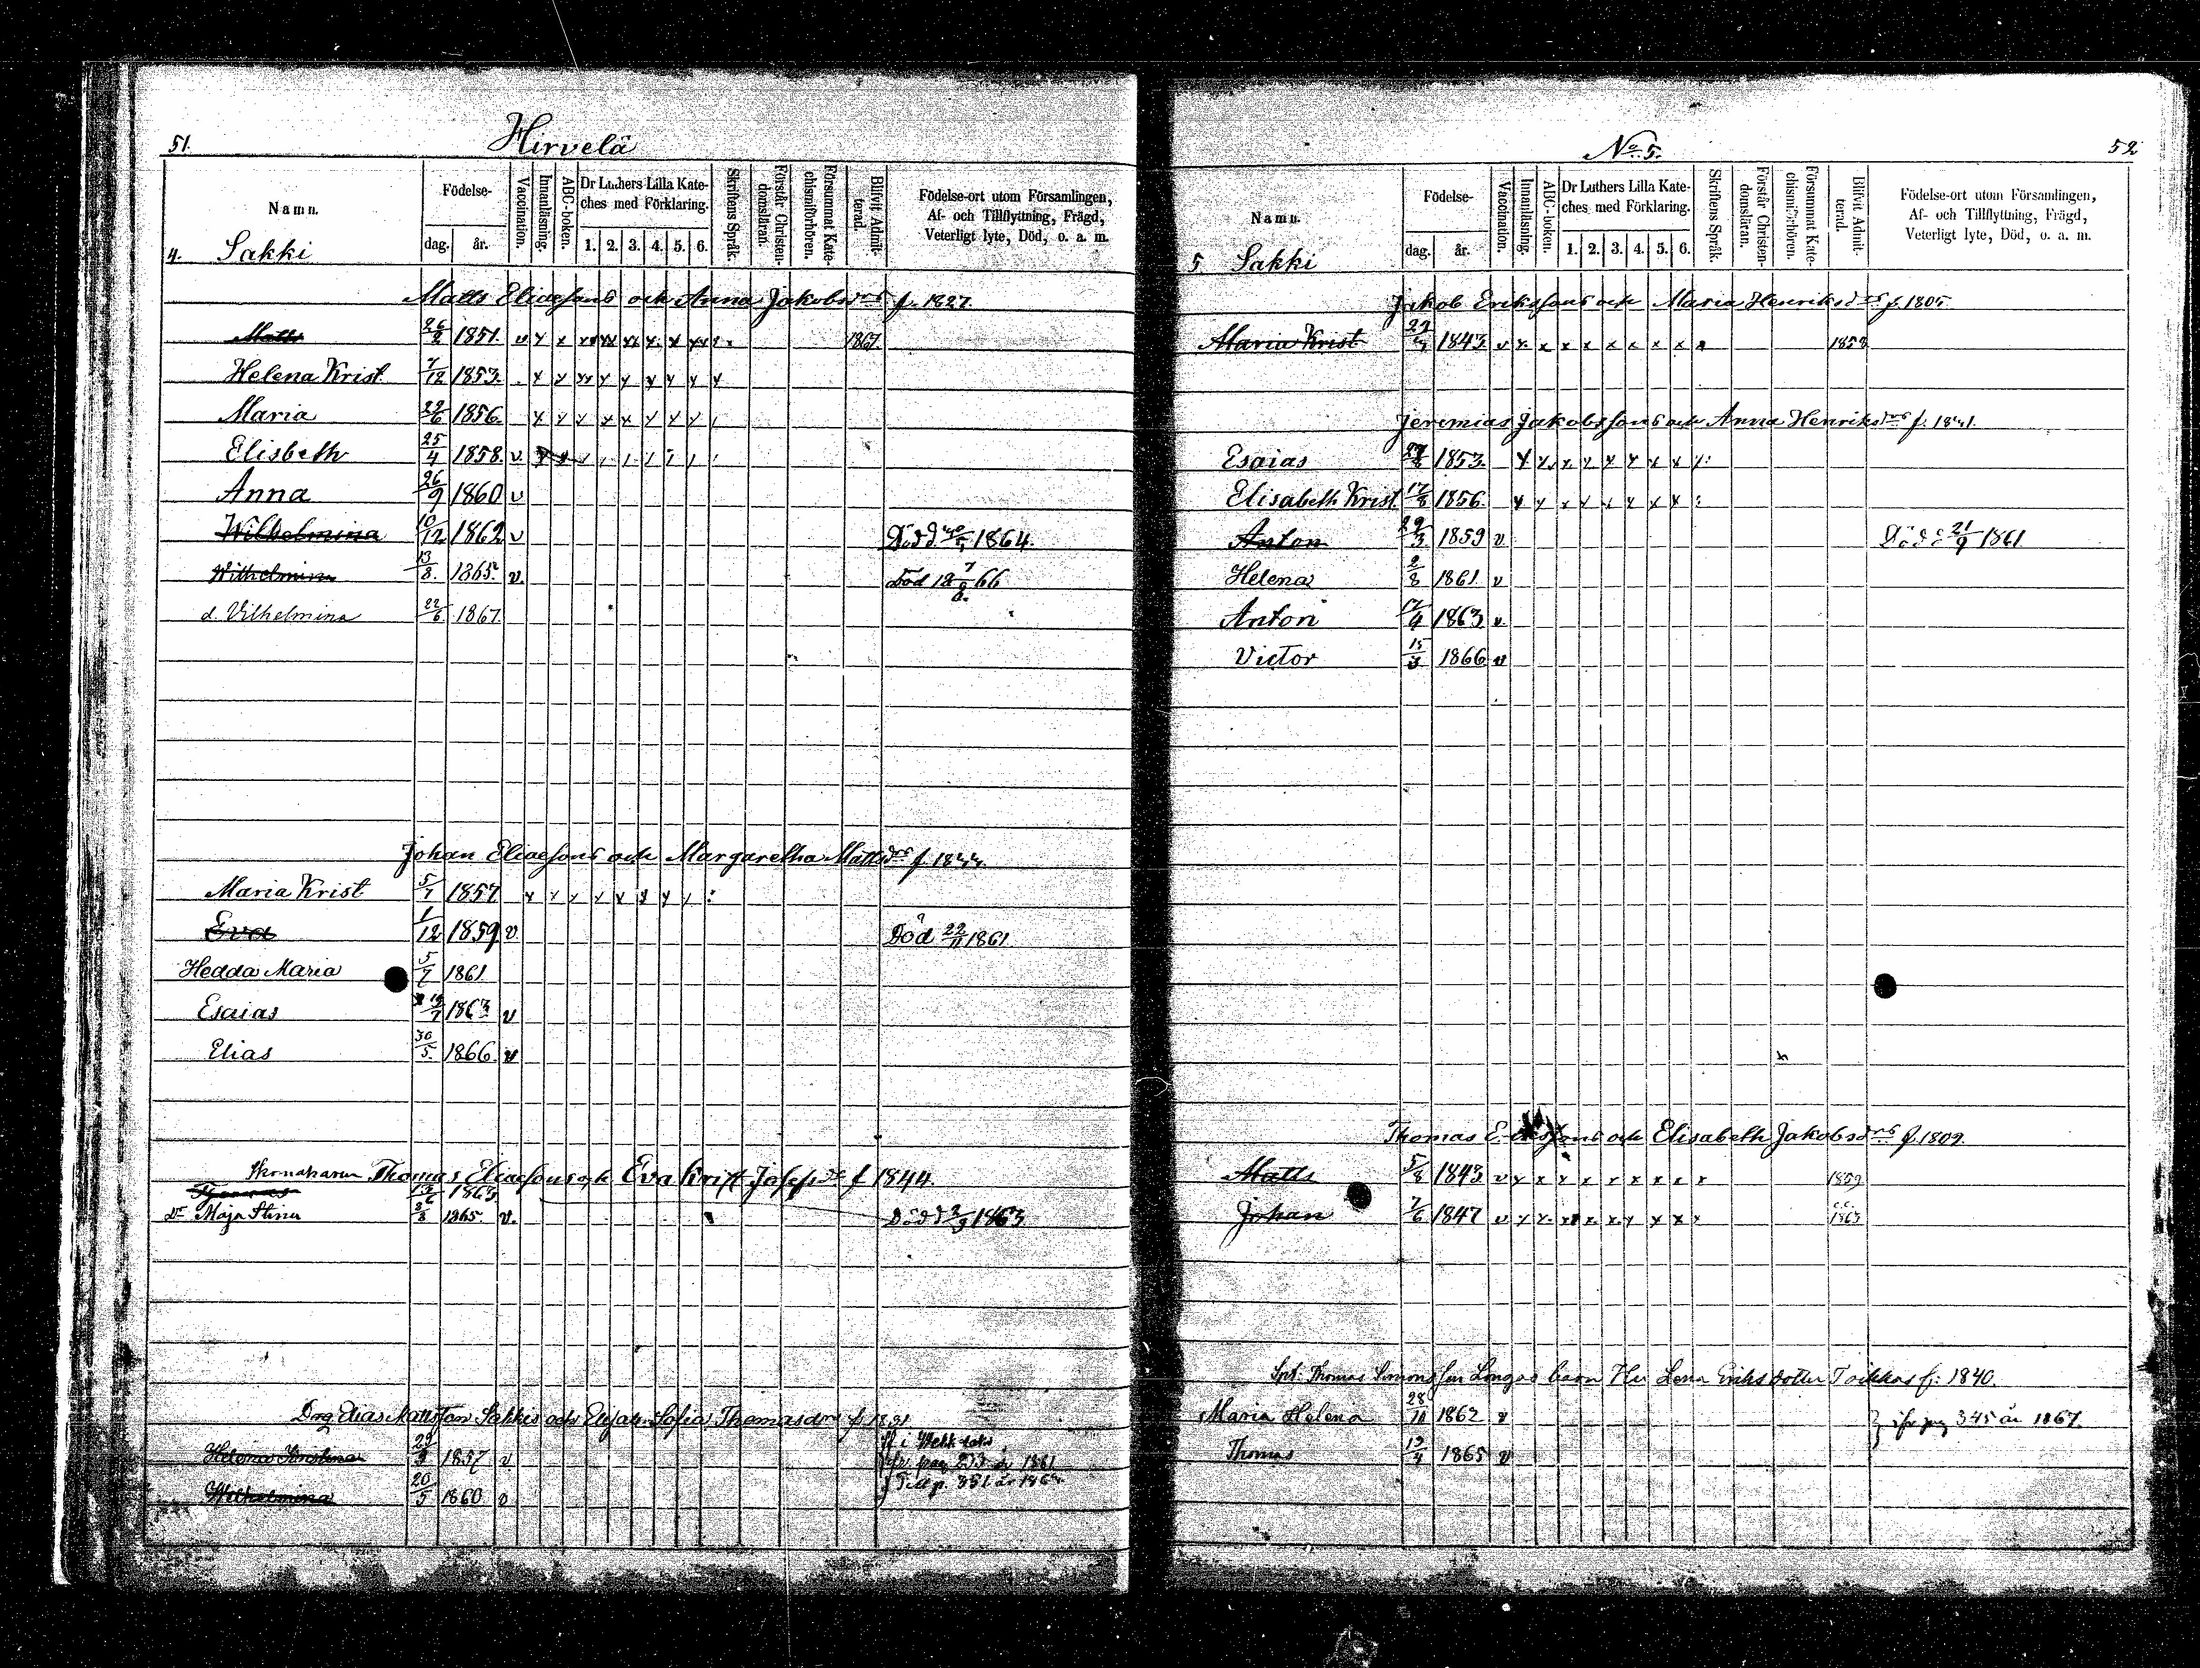 51.
Hirvelä
Namn.
Födelse-
dag.
år.
Vaccination.
Innanläsning.
ABC-boken.
Dr Luthers Lilla Kate-
ches med Förklaring.
1. 2. 3. 4. 5. 6.
Skriftens Språk.
Förstår Christen-
domsläran.
Försummat Kate-
chismiförhören.
Blifvit Admit-
terad.
Födelse-ort utom Församlingen,
Af- och Tillflyttning, Frägd,
Veterligt lyte, Död, o. a. m.
4. Sakki
Matts Eliaesons och Anna Jakobsdrs f. 1827.
Matts 26/2 1851. v x x xx xx xx x x xx 1867
Helena Krist. 7/12 1853. x x xx x x x x x x
Maria 29/6 1856. x x x x x x x x
Elisbeth 25/4 1858. v
Anna 26/9 1860 v
Wilhelmina 10/12 1862 v Död 1864.
Wilhelmina 13/8. 1865. v. Död 18 7/8. 66
d. Vilhelmina 22/6 1867.
Johan Eliaesons och Margaretha Mattsdrs f. 1844.
Maria Krist 5/7 1857 x x x x x x x
Eva 1/12 1859 v Död 22/11 1861.
Hedda Maria 5/7 1861.
Esaias 1863 v
Elias 30/5. 1866. v
Thomas Eliaesons och Eva Krist Josefsdr f 1844.
Thomas 1863
Dr Maja Stina 1865. v. Död 2/9 1863
Drg Elias Mattsson Sakkis och Elisab. Sofia Thomasdrs f 1831
Helena Kristina 1857 v
fr. pag 1861
Wilhelmina 20/5 1860 v Till p. 331 år
No. 5.
52
Namn.
Födelse-
dag.
år.
Vaccination.
Innanläsning.
ABC-boken.
Dr Luthers Lilla Kate-
ches med Förklaring.
1. 2. 3. 4. 5. 6.
Skriftens Språk.
Förstår Christen-
domsläran.
Försummat Kate-
chismiförhören.
Blifvit Admit-
terad.
Födelse-ort utom Församlingen,
Af- och Tillflyttning, Frägd,
Veterligt lyte, Död, o. a. m.
5 Sakki
Jakob Erikssons och Maria Henriksdrs f. 1805.
Maria Krist 1843. v x x x x x x x x 1858
Jeremias Jakobssons och Anna Henriksdrs f.
Esaias 1853. x x x x x x x x
Elisabeth Krist. 17/8 1856. x x x x x x x x
Anton 29/3 1859 v Död 21/9 1861
Helena 2/8 1861 v
Anton 17/4 1863 v
Victor 15/3 1866 v
Thomas Erikssons och Elisabeth Jakobsdrs f. 1809.
Matts 5/8 1843. v x x x x x x x x x 1859
Johan 7/6 1847 v x x x x x x x x 1863
Thomas Simonsson Longas barn Hu Lena Eriksdotter Toikkas f: 1840.
Maria Helena 28/11 1862 v } ifr pag 345 år 1867.
Thomas 19/4 1865 v